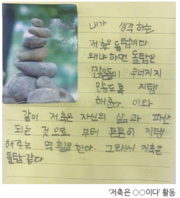 내가 생각하는
저축은 돌탑이다
왜냐하면 돌탑은
무너지지
않도록 지탱
해준다. 이와
같이 저축은 자신의 삶과
되는 것으로 부터 튼튼히 지탱
해주는 역할을 한다. 그래서 저축은
돌탑 같다
'저축은 ○○이다' 활동